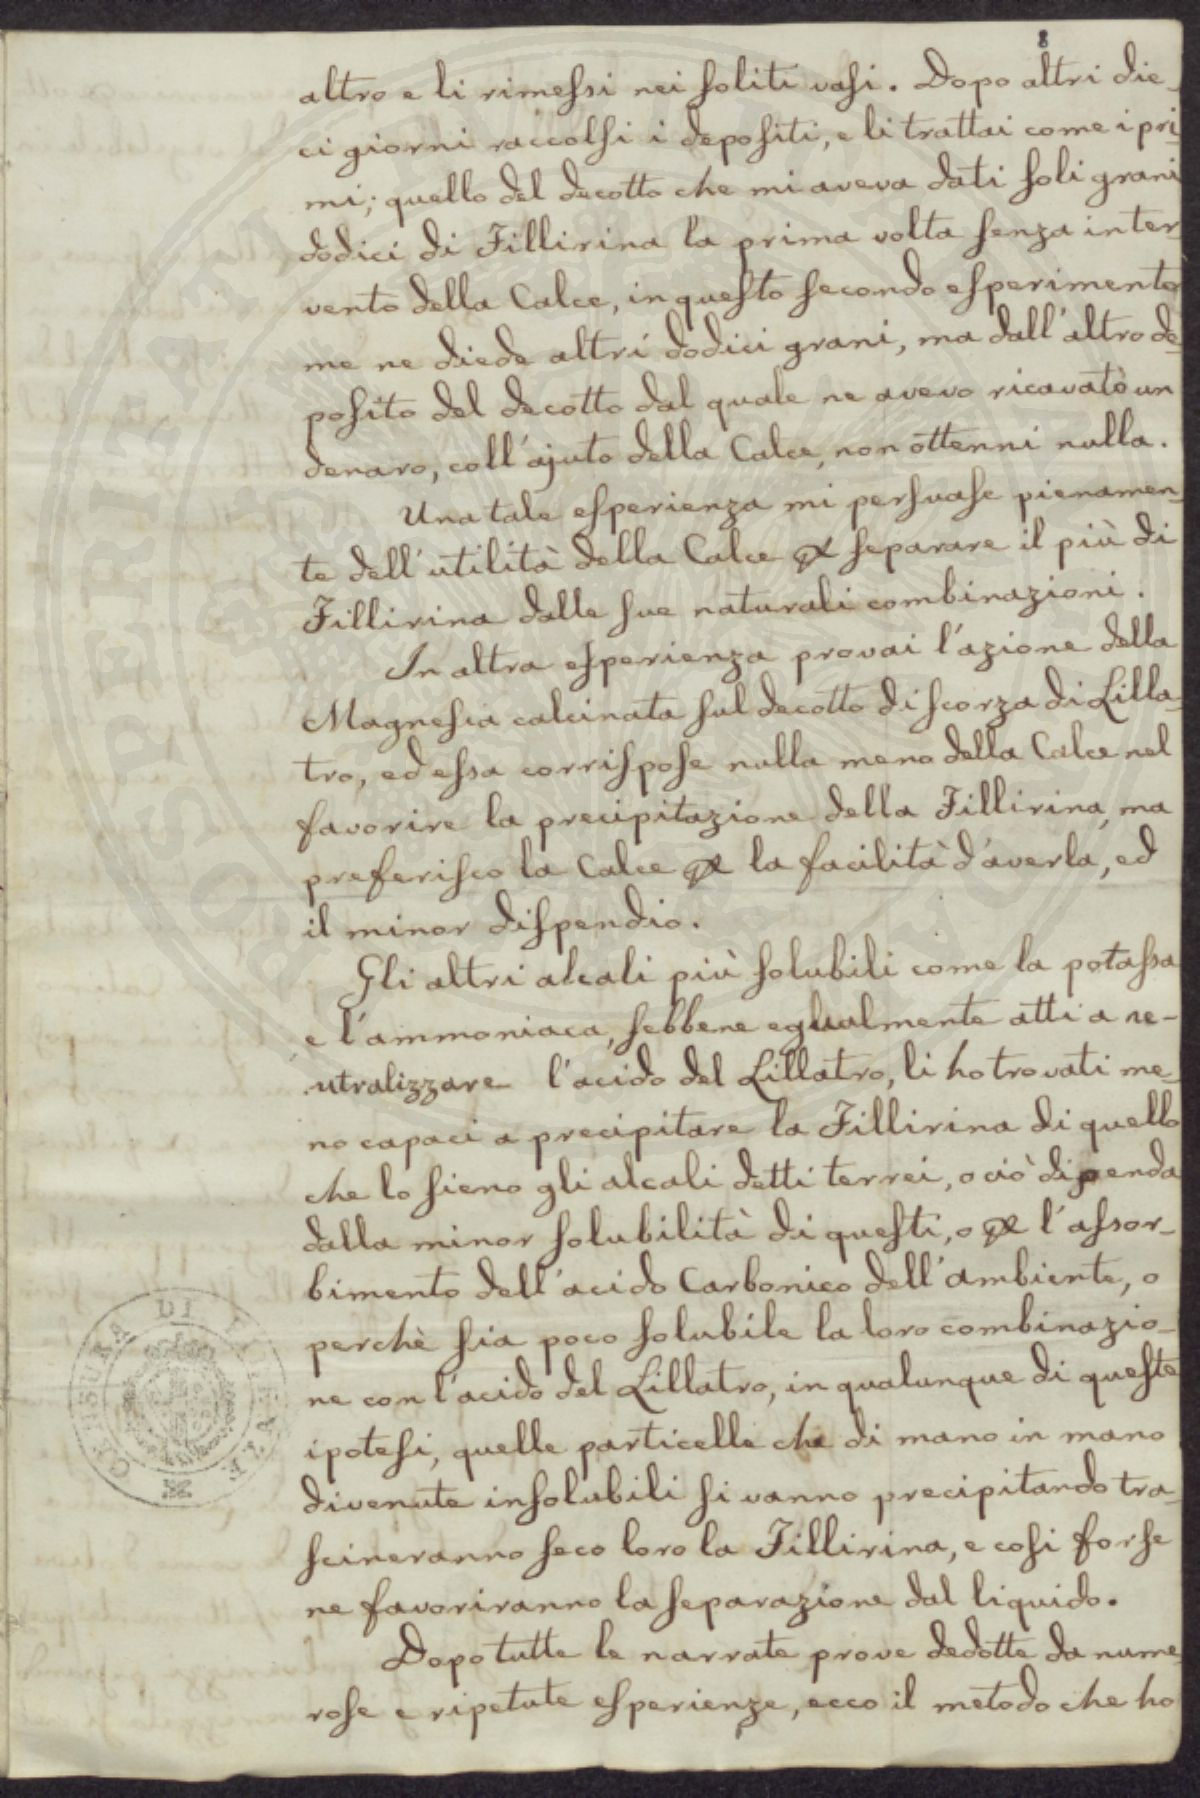 8
altro e li rimessi nei soliti vasi. Dopo altri die-
ci giorni raccolsi i depositi, e li trattai come i pri-
mi; quello del decotto che mi aveva dati soli grani
dodici di Fillirina la prima volta senza inter-
vento della Calce, in questo secondo esperimento
me ne diede altri dodici grani, ma dall'altro de-
posito del decotto dal quale ne avevo ricavato un
denaro, coll'ajuto della Calce, non ottenni nulla.
Una tale esperienza mi persuase pienamen-
te dell'utilità della Calce ꝑ separare il più di
Fillirina dalle sue naturali combinazioni.
In altra esperienza provai l'azione della
Magnesia calcinata sul decotto di scorza di Lilla-
tro, ed essa corrispose nulla meno della Calce nel
favorire la precipitazione della Fillirina, ma
preferisco la Calce ꝑ la facilità d'averla, ed
il minor dispendio.
Gli altri alcali più solubili come la potassa
e l'ammoniaca, sebbene egualmente atti a ne-
utralizzare l'acido del Lillatro, li ho trovati me-
no capaci a precipitare la Fillirina di quello
che lo sieno gli alcali detti terrei, o ciò dipenda
dalla minor solubilità di questi, o ꝑ l'assor-
bimento dell'acido Carbonico dell'ambiente, o
perchè sia poco solubile la loro combinazio-
ne con l'acido del Lillatro, in qualunque di queste
ipotesi, quelle particelle che di mano in mano
divenute insolubili si vanno precipitando tra-
scineranno seco loro la Fillirina, e cosi forse
ne favoriranno la separazione dal liquido.
Dopo tutte le narrate prove dedotte da nume-
rose e ripetute esperienze, ecco il metodo che ho
PROSPERITATI
CENSURA DI FIRENZE